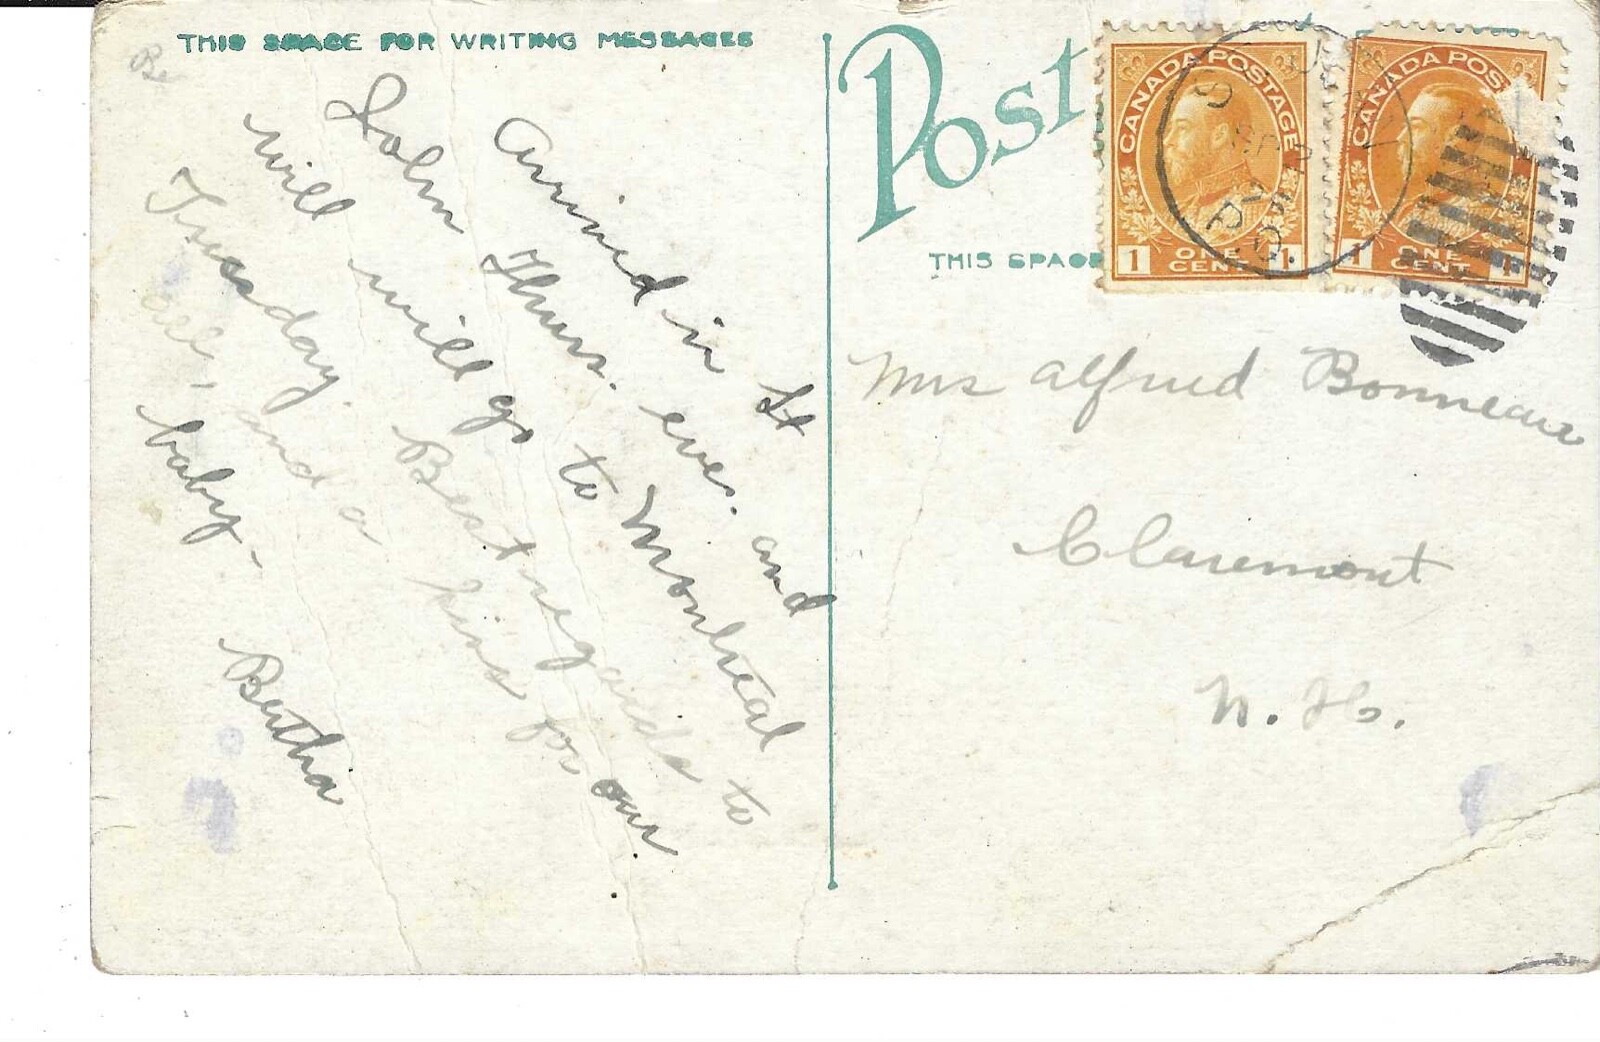 THIS SPACE FOR WRITING MESSAGES
Be
Arrived in St
John Thurs. eve. and
will will go to Montreal
Tuesday. Best regards to
all, and a kiss for our
baby.
Bertha
Post
THIS SPACE
CANADA POSTAGE
1 ONE CENT 1
CANADA POS
1 ONE CENT 1
P.O.
Mrs Alfred Bonneau
Claremont
N. H.